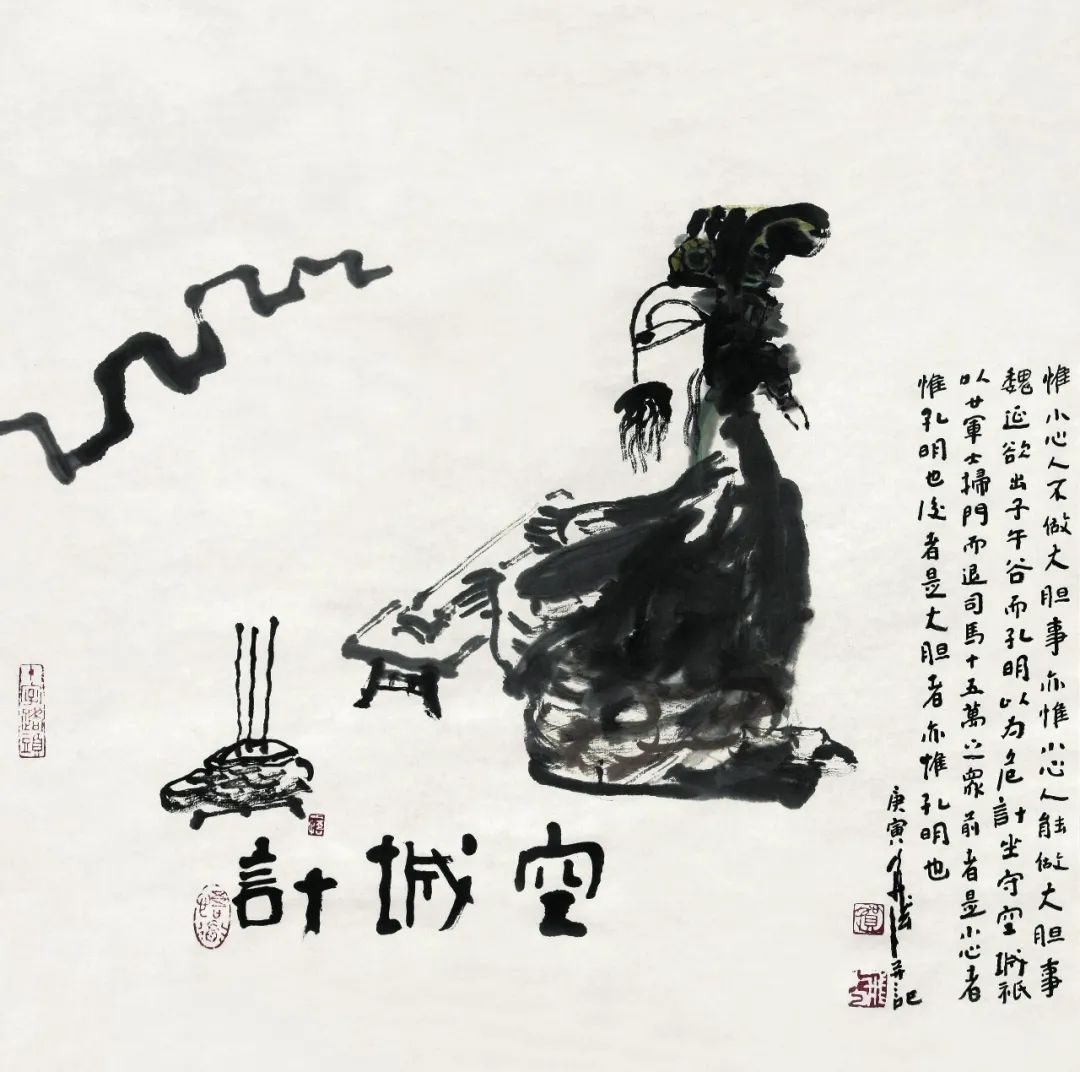 惟小心人不做大胆事亦惟小心人能做大胆事
魏延欲出子午谷而孔明以为危計坐守空城祇
以廿軍士掃門而退司馬十五萬之眾前者是小心者
惟孔明也後者是大胆者亦惟孔明也
庚寅并記
空城計
十字路頭